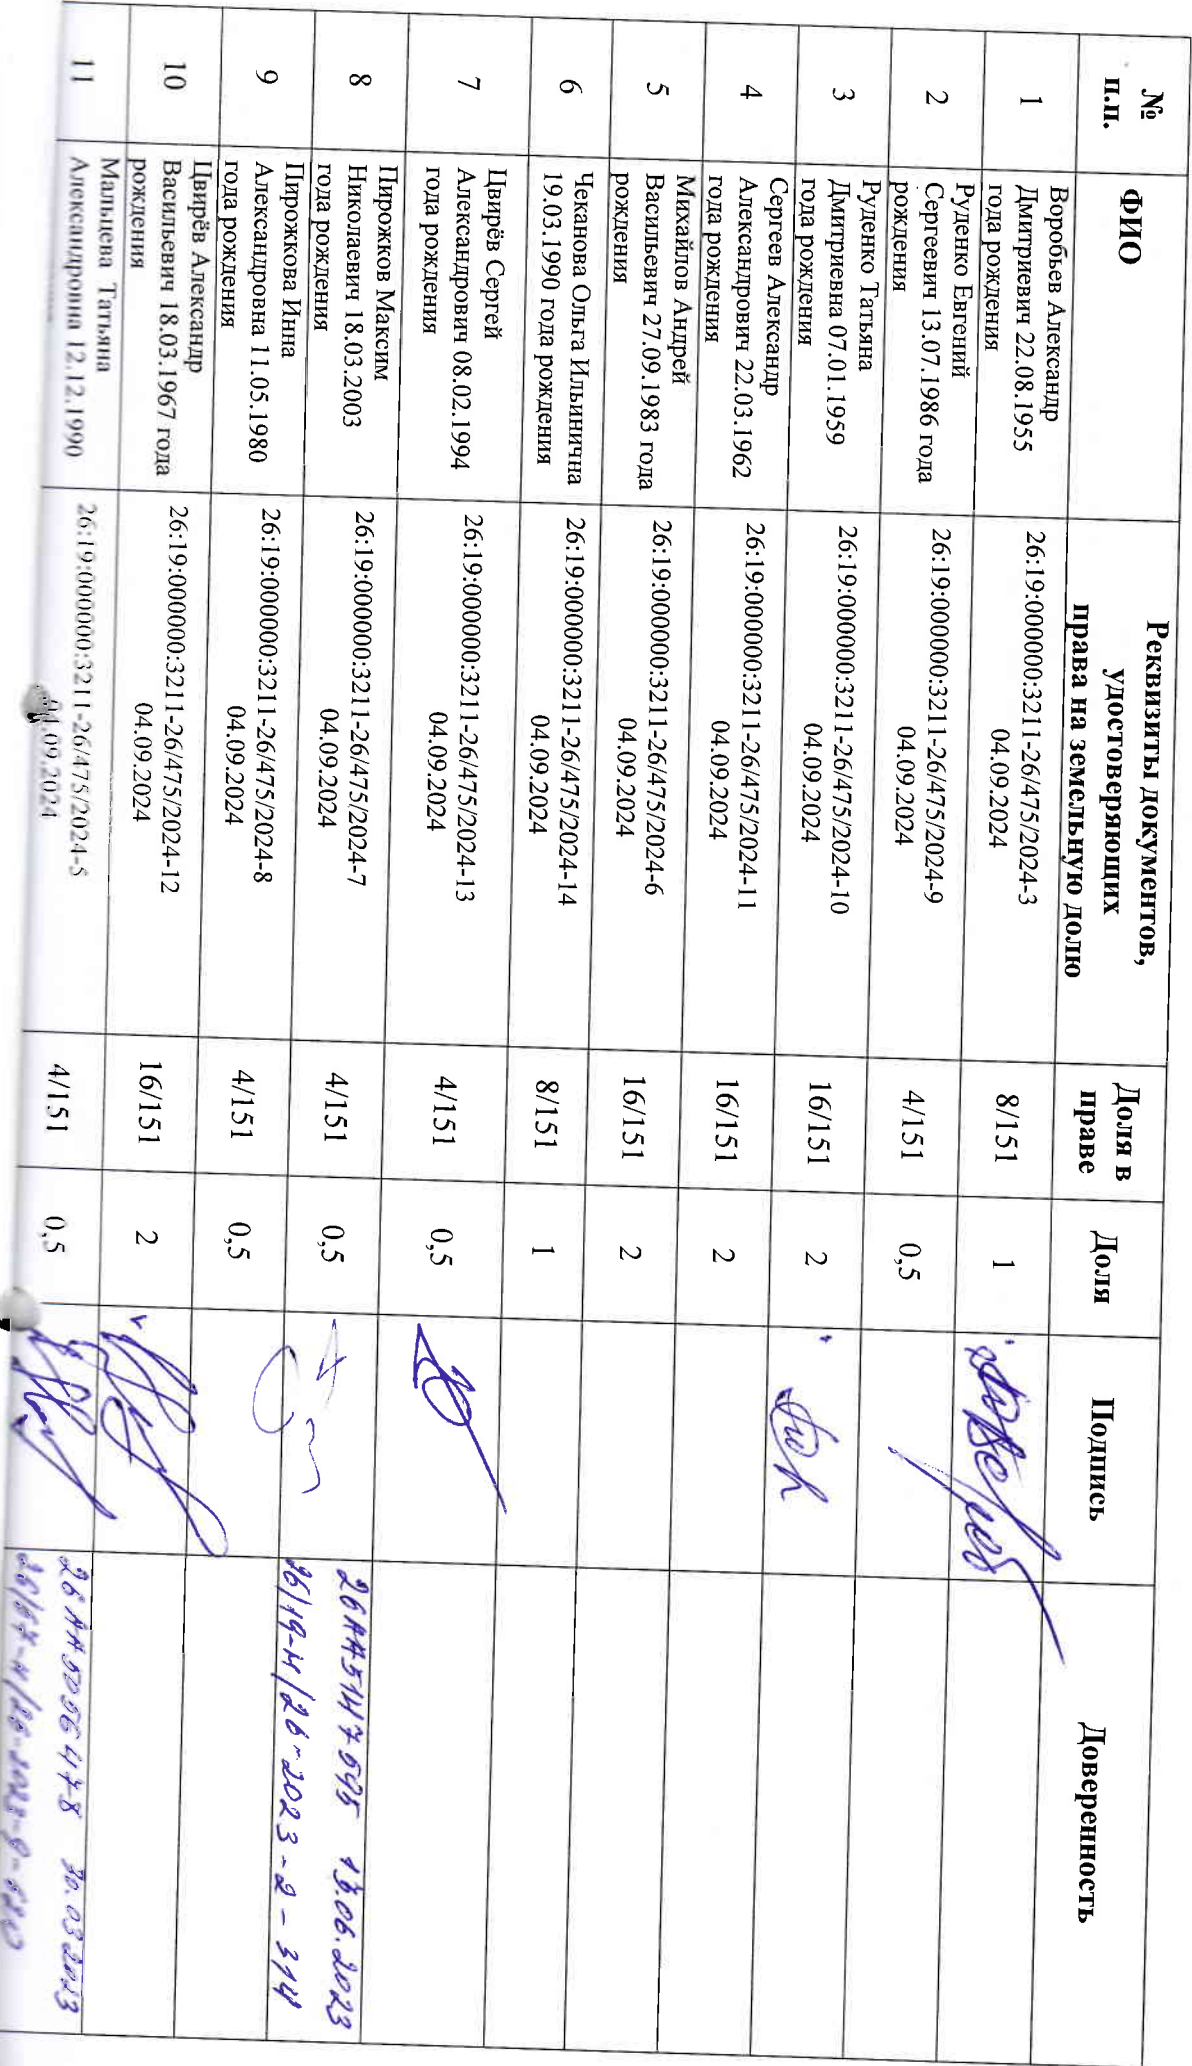 № п.п.
ФИО
Реквизиты документов, удостоверяющих права на земельную долю
Доля в праве
Доля
Подпись
Доверенность
1
Воробьев Александр
Дмитриевич 22.08.1955
года рождения
26:19:000000:3211-26/475/2024-3
04.09.2024
8/151
1
2
Руденко Евгений
Сергеевич 13.07.1986 года
рождения
26:19:000000:3211-26/475/2024-9
04.09.2024
4/151
0,5
3
Руденко Татьяна
Дмитриевна 07.01.1959
года рождения
26:19:000000:3211-26/475/2024-10
04.09.2024
16/151
2
4
Сергеев Александр
Александрович 22.03.1962
года рождения
26:19:000000:3211-26/475/2024-11
04.09.2024
16/151
2
5
Михайлов Андрей
Васильевич 27.09.1983 года
рождения
26:19:000000:3211-26/475/2024-6
04.09.2024
16/151
2
6
Чеканова Ольга Ильинична
19.03.1990 года рождения
26:19:000000:3211-26/475/2024-14
04.09.2024
8/151
1
7
Цвирёв Сергей
Александрович 08.02.1994
года рождения
26:19:000000:3211-26/475/2024-13
04.09.2024
4/151
0,5
8
Пирожков Максим
Николаевич 18.03.2003
года рождения
26:19:000000:3211-26/475/2024-7
04.09.2024
4/151
0,5
26АА5147595 13.06.2023
26/19-н/26-2023-2-314
9
Пирожкова Инна
Александровна 11.05.1980
года рождения
26:19:000000:3211-26/475/2024-8
04.09.2024
4/151
0,5
10
Цвирёв Александр
Васильевич 18.03.1967 года
рождения
26:19:000000:3211-26/475/2024-12
04.09.2024
16/151
2
11
Мальцева Татьяна
Александровна 12.12.1990
26:19:000000:3211-26/475/2024-5
04.09.2024
4/151
0,5
26АА5056478 30.03.2023